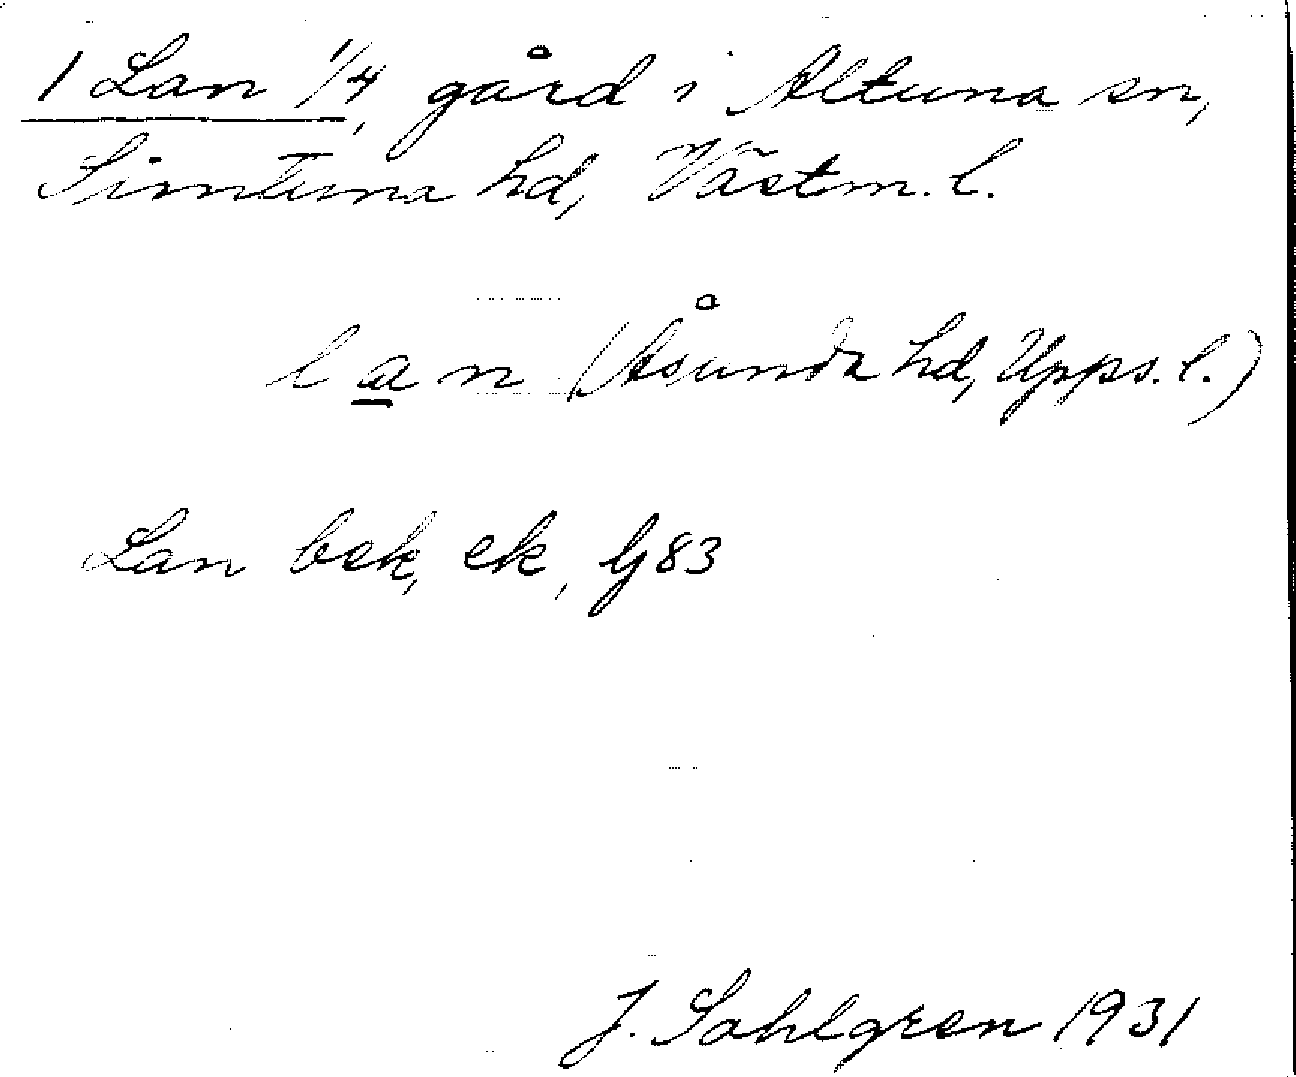 1 Lan 1/4, gård i Altuna sn,
Simtuna hd, Västm. l.
lan (Åsunda hd, Upps. l.)
Lan bek, ek, Gj 83
J. Sahlgren 1931